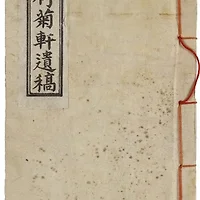 菊軒遺稿